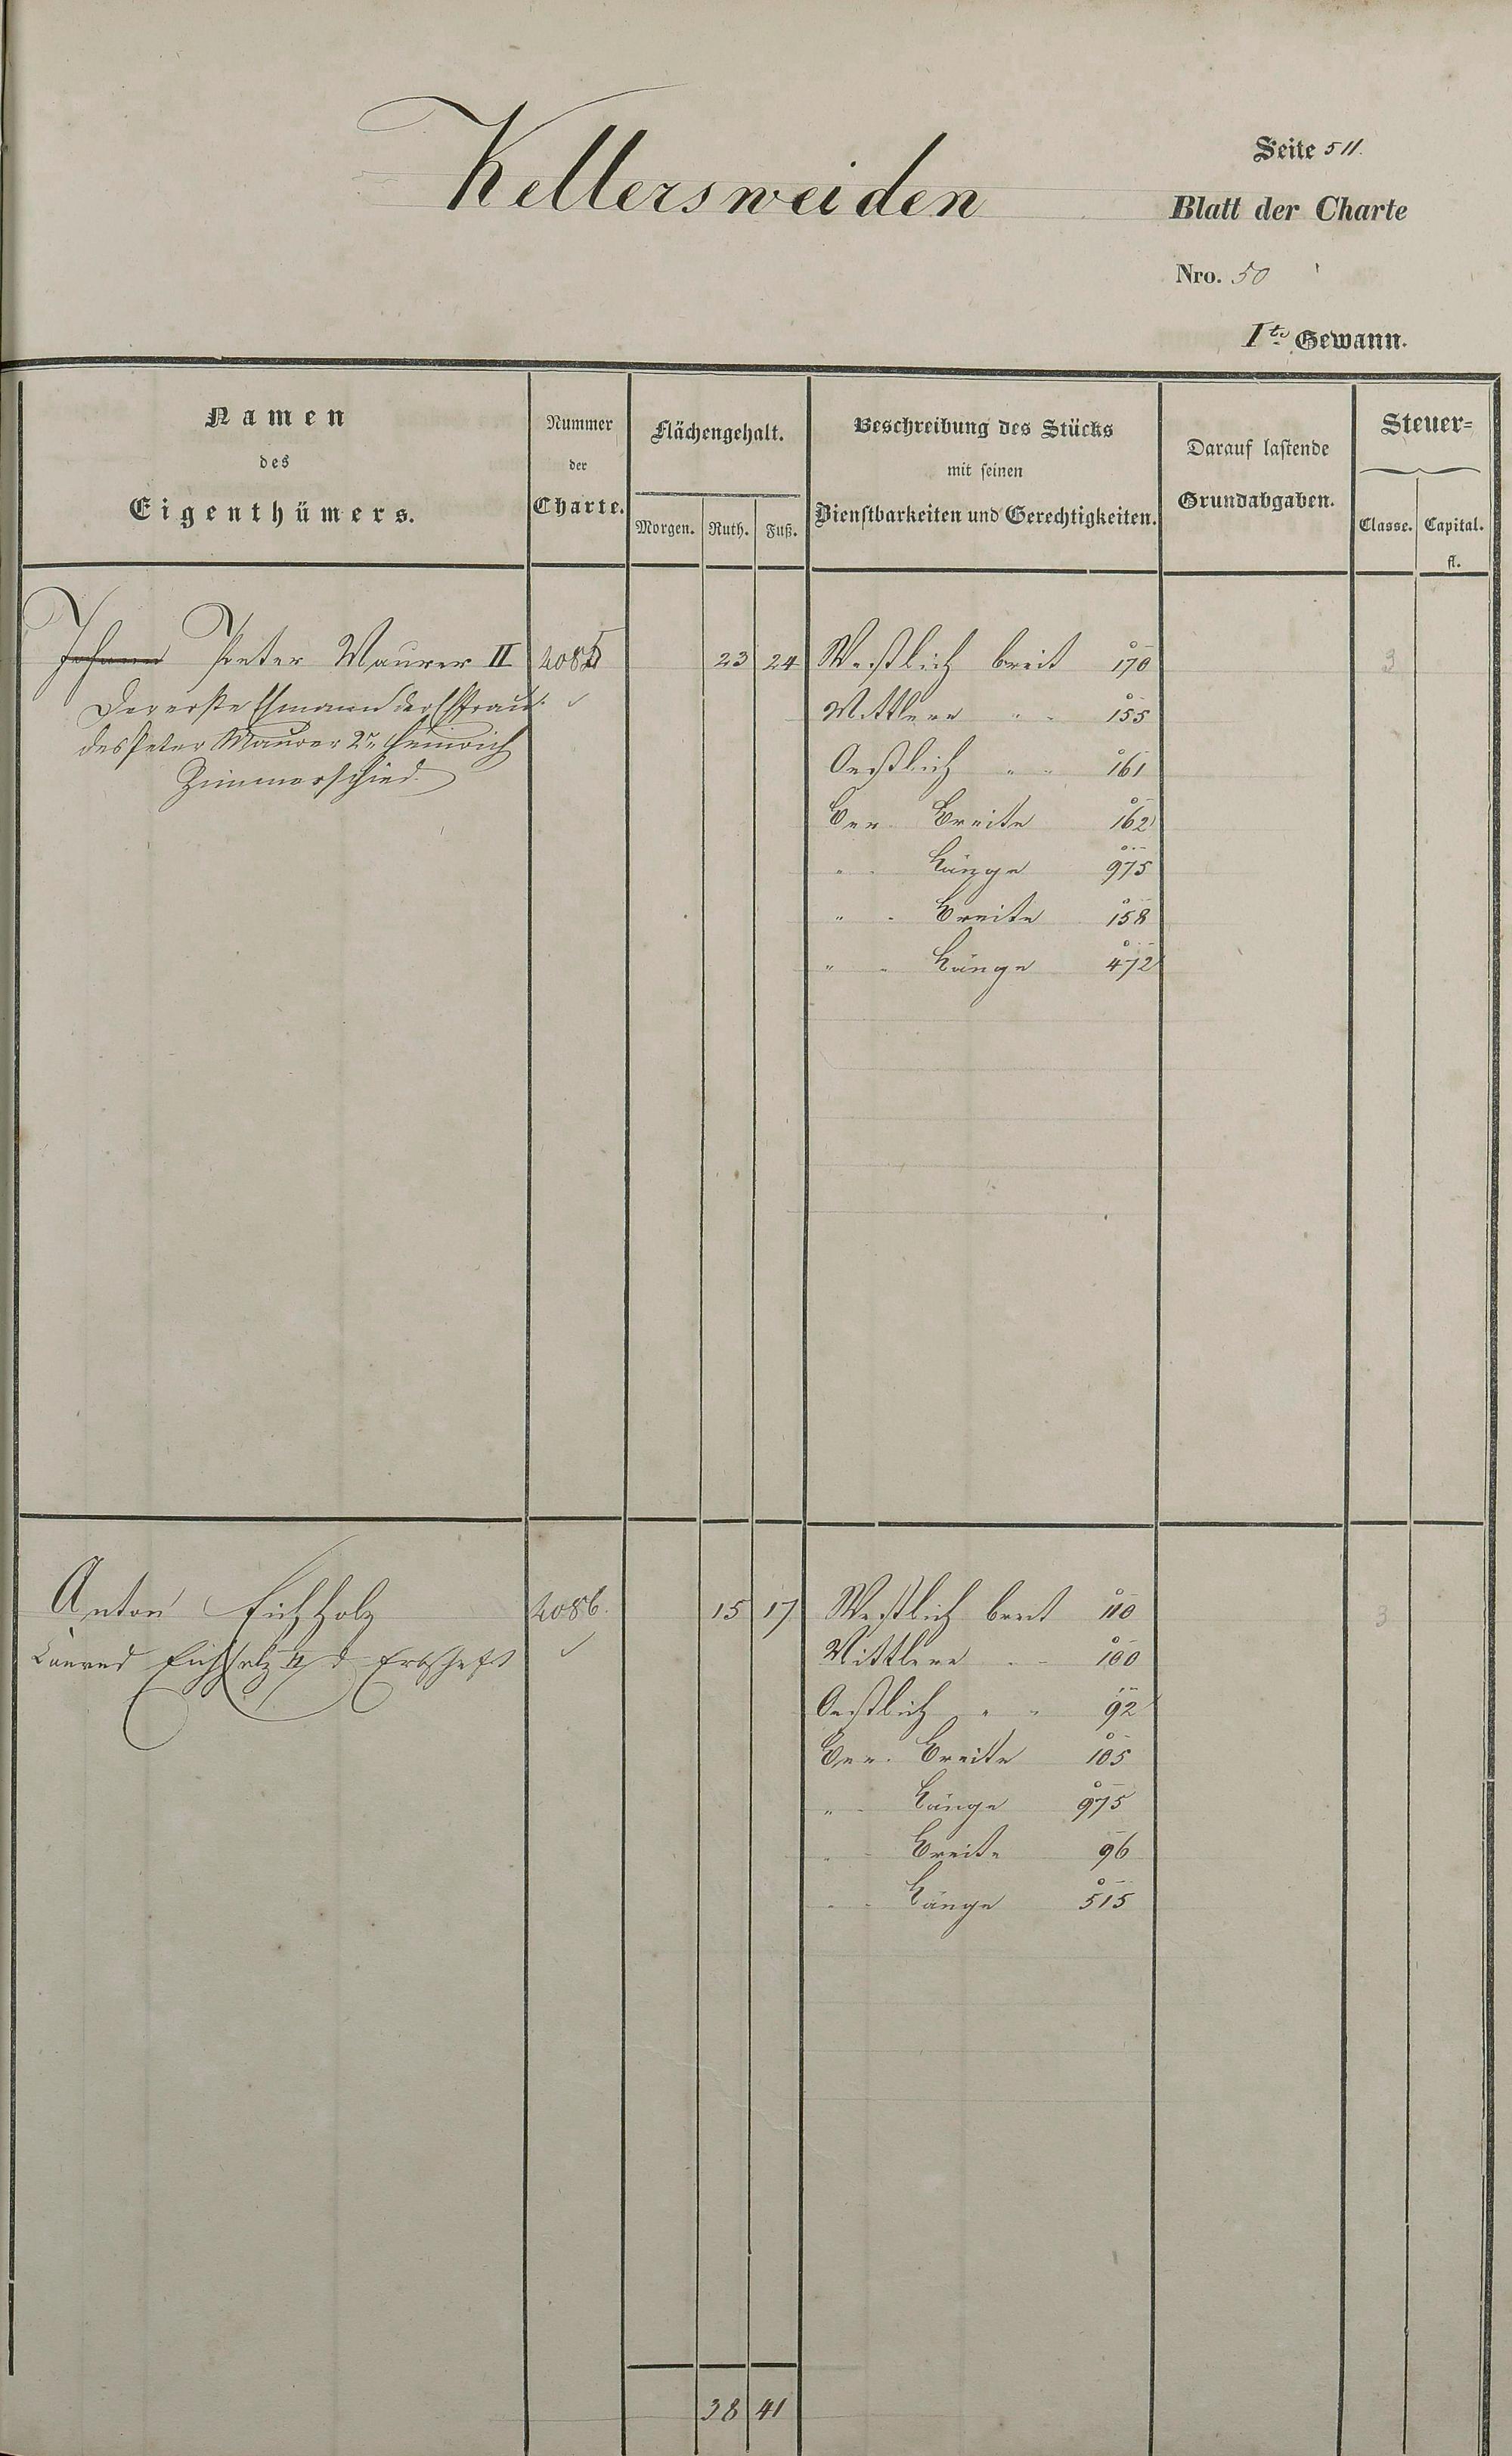 Kellersweiden
Seite 511.
Blatt der Charte
Nro. 50
Ite Gewann.
Namen
des
Eigenthümers.
Nummer
der
Charte.
Flächengehalt.
Morgen. Ruth. Fuß.
Beschreibung des Stücks
mit seinen
Dienstbarkeiten und Gerechtigkeiten.
Darauf lastende
Grundabgaben.
Steuer-
Classe. Capital.
fl.
Johann Peter Maurer II 2085 23 24 Westlich breit 170 3
Der erste Ehmann der Ehfrau
des Peter Maurer 2r Heinrich
Zimmerschied
Mittlere " " 155
Oestlich " " 161
Ber. Breite 162
" " Länge 975
" " Breite 158
" " Länge 472
Anton Eichholz 2086. 15 17 Westlich breit 110 3
Conrad Eichholz II d Erbschaft
Mittlere " " 100
Oestlich " " 92
Ber. Breite 105
" " Länge 975
" " Breite 96
" " Länge 515
38 41